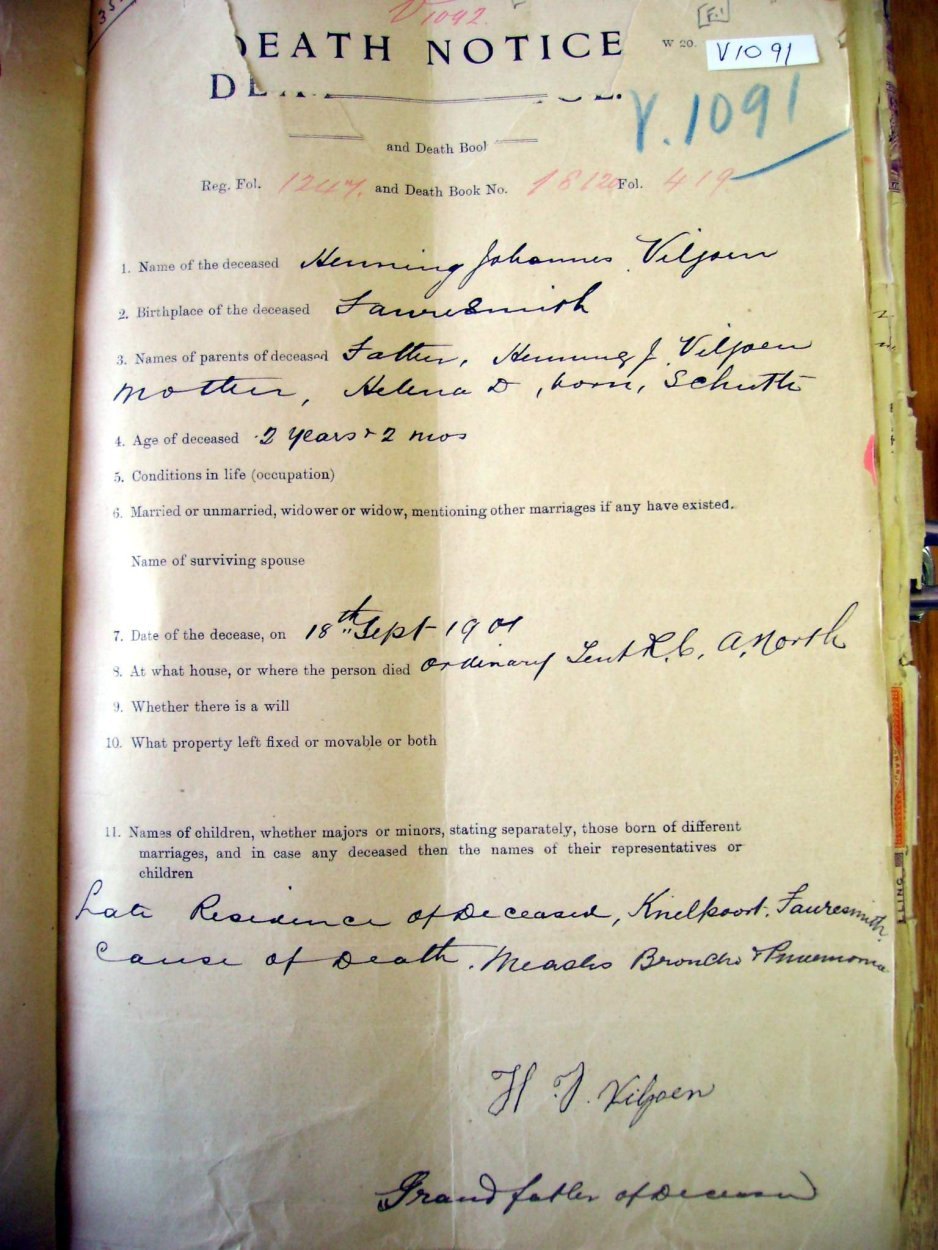 V1092.
DEATH NOTICE
W 20.
V1091
V.1091
and Death Bool
Reg. Fol. 1247. and Death Book No. 18120 Fol. 419
1. Name of the deceased Henning Johannes Viljoen
2. Birthplace of the deceased Fauresmith
3. Names of parents of deceased Father, Henning J. Viljoen
Mother, Helena D, born, Schutte
4. Age of deceased 2 years & 2 mos
5. Conditions in life (occupation)
6. Married or unmarried, widower or widow, mentioning other marriages if any have existed.
Name of surviving spouse
7. Date of the decease, on 18th Sept 1901
8. At what house, or where the person died Ordinary Tent R.C. A. North
9. Whether there is a will
10. What property left fixed or movable or both
11. Names of children, whether majors or minors, stating separately, those born of different
marriages, and in case any deceased then the names of their representatives or
children
Late Residence of Deceased, Knelpoort. Fauresmith.
Cause of Death. Measles Broncho & Pnuemonia
H. J. Viljoen
Grandfather of Deceased